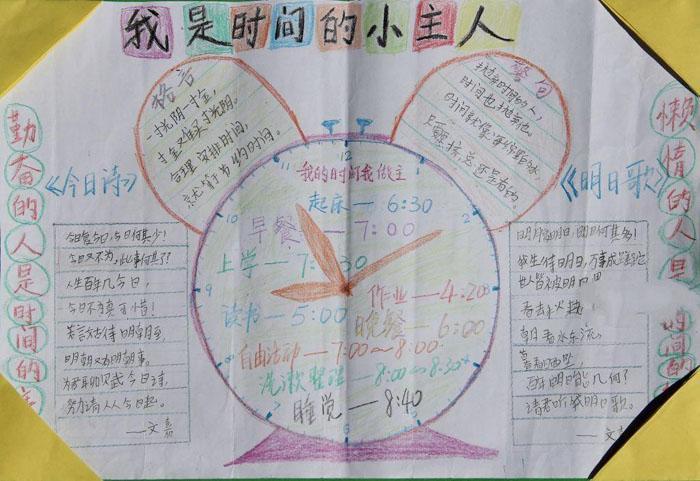 我是时间的小主人
勤奋的人是时间的主
格言
一寸光阴一寸金,
寸金难买寸光阴。
合理安排时间,
就等于节约时间。
警句
抛弃时间的人,
时间也抛弃他。
时间就像海绵里的水,
只要挤总还是有的。
懒惰的人是
《今日诗》
今日复今日,今日何其少!
今日又不为,此事何其了?
人生百年几今日,
今日不为真可惜!
若言姑待明朝至,
明朝又有明朝事。
为君聊赋今日诗,
努力请从今日起。
——文嘉
12
1
2
9
10
我的时间我做主
起床—6:30
早餐—7:00
上学—7:30
作业—4:20
读书—5:00
晚餐—6:00
自由活动—7:00~8:00
洗漱整理—8:00~8:30
睡觉—8:40
《明日歌》
明日复明日,明日何其多!
我生待明日,万事成蹉跎
世人皆被明日
看水东流,
百年明日能几何?
请君听我明日歌。